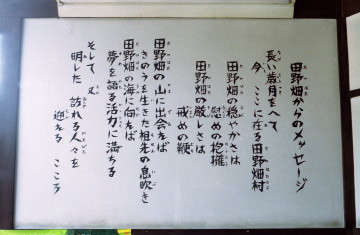 田野畑からのメッセージ
長い歳月をへて
今、ここに在る田野畑村
田野畑の穏やかさは
慰めの抱擁
田野畑の厳しさは
戒めの鞭
田野畑の山に出会えば
きのうを生きた祖先の息吹き
田野畑の海に向えば
夢を語る活力に満ちる
そして又
明した 訪れる人々を
迎える こころ